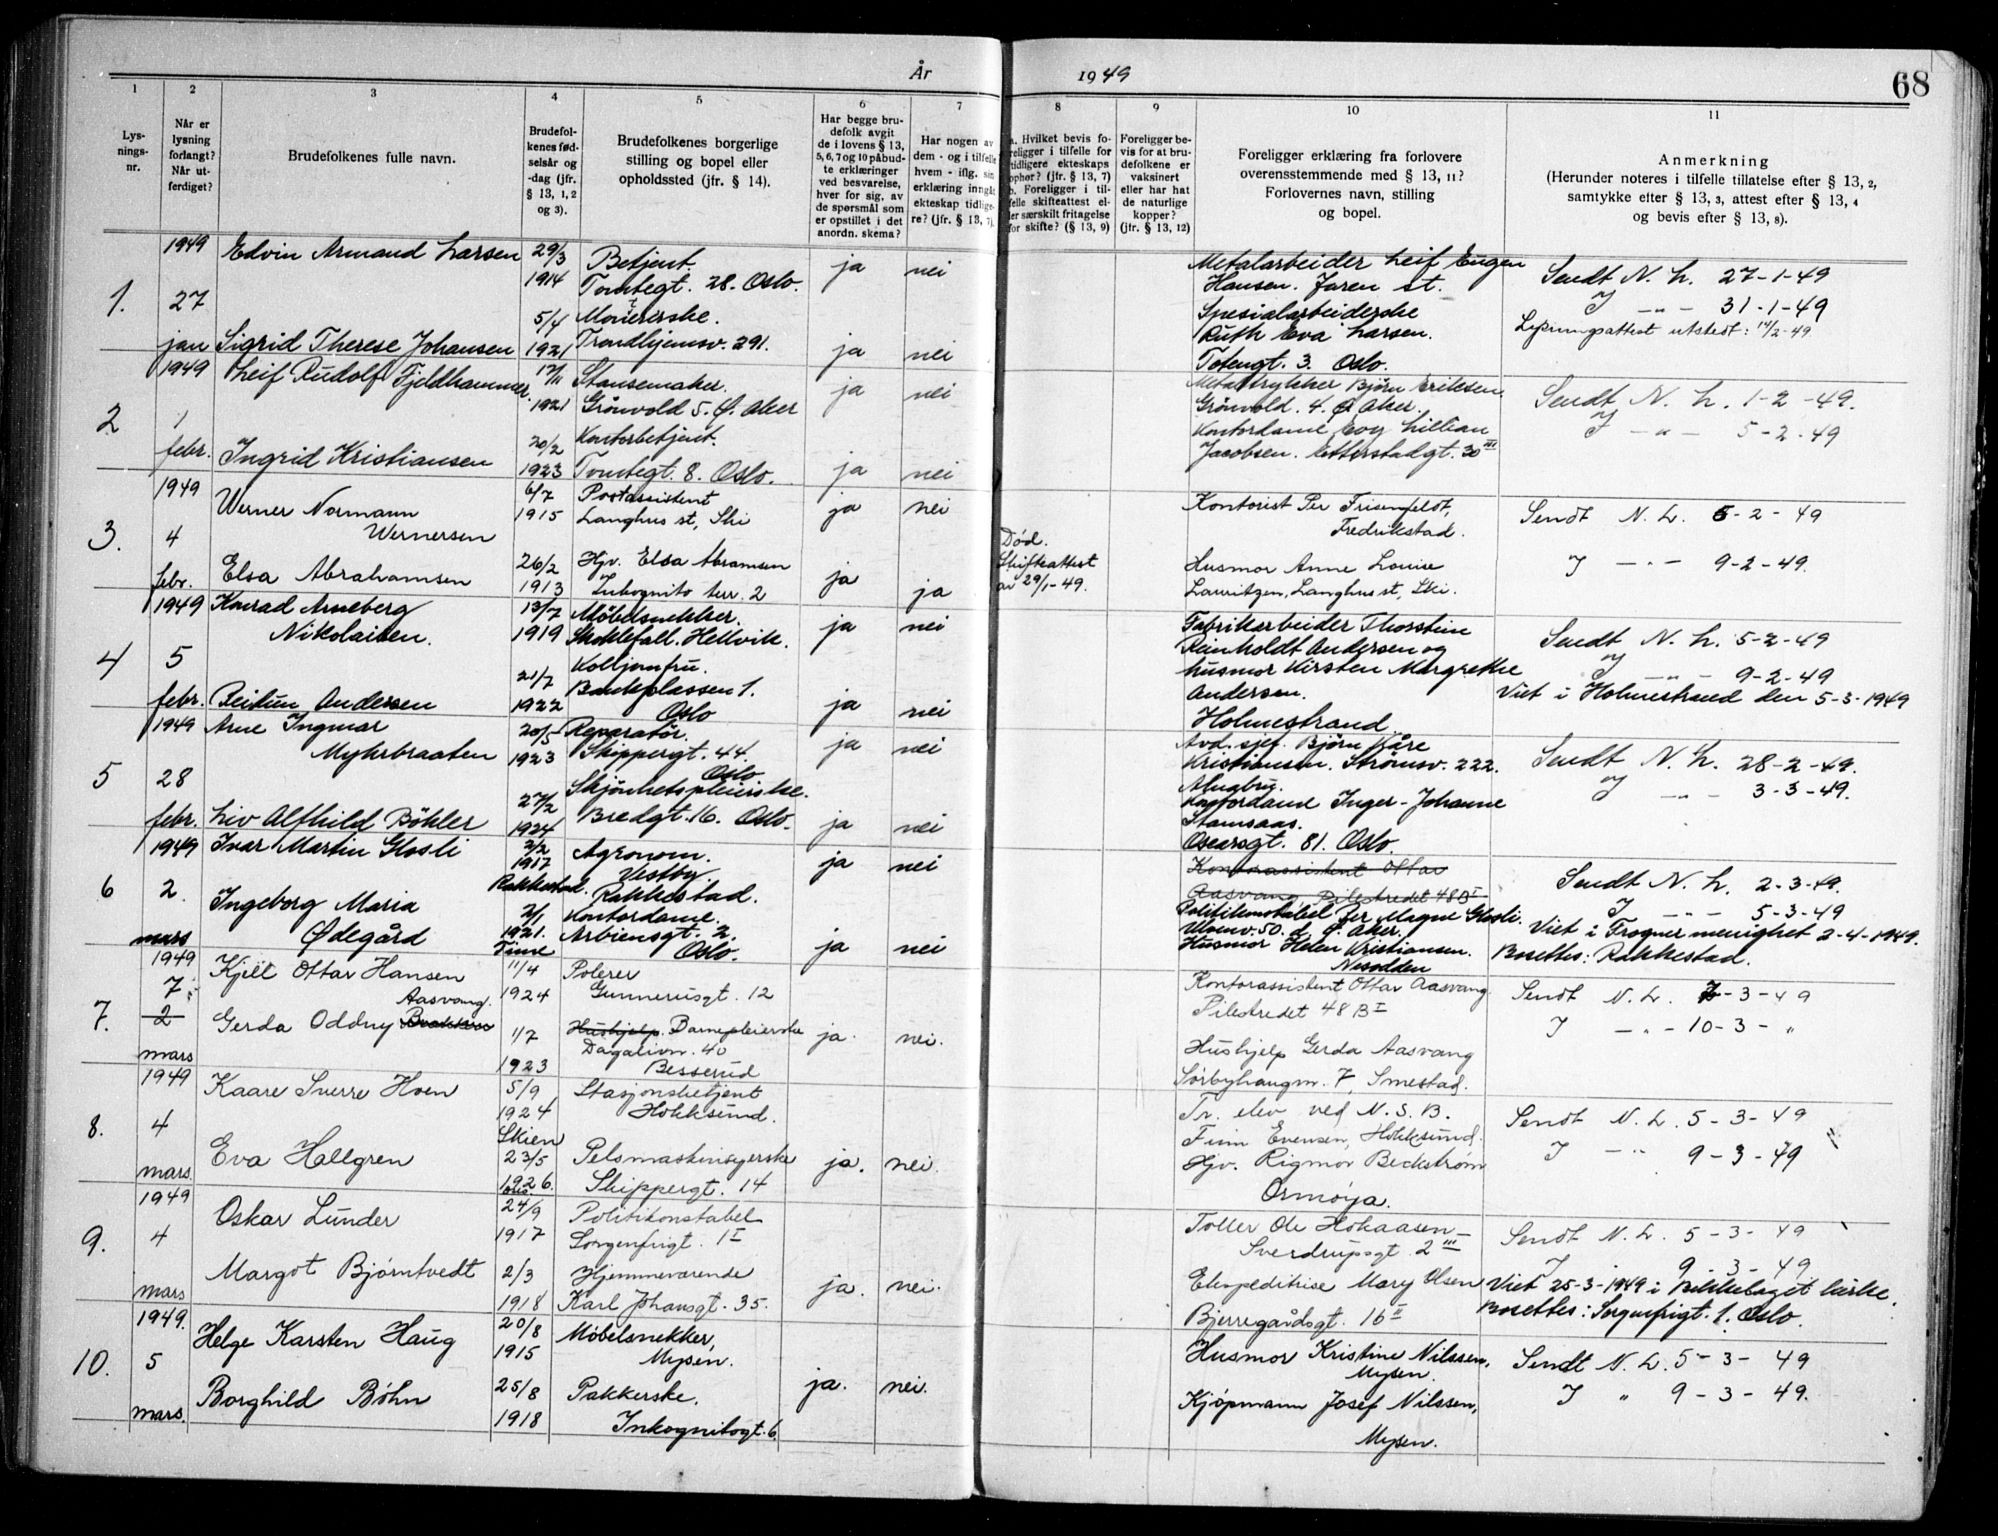 År
1949
68
1
2
3
4
5
6
7
8
9
10
11
Lys-
nings-
nr.
Når er
lysning
forlangt?
Når ut-
ferdiget?
Brudefolkenes fulle navn.
Brudefol-
kenes fød-
selsår og
-dag (jfr.
§ 13, 1, 2
og 3).
Brudefolkenes borgerlige
stilling og bopel eller
opholdssted (jfr. § 14).
Har begge bru-
defolk avgit
de i lovens § 13,
5, 6, 7 og 10 påbud-
te erklæringer
ved besvarelse,
hver for sig, av
de spørsmål som
er opstillet i det
anordn. skema?
Har nogen av
dem - og i tilfelle
hvem - iflg. sin
erklæring inngåt
ekteskap tidlige-
re? (jfr. § 13, 7).
a. Hvilket bevis fo-
religger i tilfelle for
tidligere ekteskaps
ophør? (jfr. § 13, 7)
b. Foreligger i til-
felle skifteattest el-
ler særskilt fritagelse
for skifte? (§ 13, 9)
Foreligger be-
vis for at bru-
defolkene er
vaksinert
eller har hat
de naturlige
kopper?
(jfr. § 13, 12)
Foreligger erklæring fra forlovere
overensstemmende med § 13, 11?
Forlovernes navn, stilling
og bopel.
Anmerkning
(Herunder noteres i tilfelle tillatelse efter § 13, 2,
samtykke efter § 13, 3, attest efter § 13, 4
og bevis efter § 13, 8).
1.
1949
27
jan
Edvin Armand Larsen
Sigrid Therese Johansen
29/3
1914
5/4
1921
Betjent.
Tomtegt. 28. Oslo.
Trondhjemsv. 291.
ja
nei
ja
nei
Metalarbeider Leif Eugen
Hansen. Jaren st.
Spesialarbeiderske
Ruth Eva Larsen.
Totengt. 3. Oslo.
Sendt N. L. 27-1-49
J -"- 31-1-49
Lysningsattest utstedt: 14/2-49
2
1949
1
febr.
Leif Rudolf Fjeldhammer
Ingrid Kristiansen
17/11
1921
20/2
1923
Stansemaker.
Grönvold 5. Ø. Aker
Kontorbetjent.
Tomtegt. 8. Oslo.
ja
nei
ja
nei
Metaltrykker Björn Eriksen
Grönvold. 4. Ø Aker.
Kontordame Eoy Lillian
Jacobsen. Etterstadgt. 30 III
Sendt N. L. 1-2-49.
J -"- 5-2-49
3.
1949
4
febr.
Werner Normann
Wernersen
Elsa Abrahamsen
6/7
1915
26/2
1913
Postassistent
Langhus st, Ski
Hjv. Elsa Abramsen
Inkognito terr. 2
ja
nei
ja
ja
Død.
Skifteattest
av 29/1-49.
Kontorist Per Frisenfeldt,
Fredrikstad.
Husmor Anne Louise
Lauritzen, Langhus st, Ski.
Sendt N. L. 5-2-49
J -"- 9-2-49.
4
1949
5
febr.
Konrad Arneberg
Nikolaisen.
Reidun Andersen
13/7
1919
21/7
1922
Möbelsnekker.
Skoklefall. Hellvik.
Kolljomfru.
Bankplassen 1.
Oslo
ja
nei
ja
nei
Fabrikarbeider Thorstein
Reinholdt Andersen og
husmor Kirsten Margrethe
Andersen.
Holmestrand
Sendt N. L. 5-2-49
J -"- 9-2-49
Viet i Holmestrand den 5-3-1949
5
1949
28
febr.
Arne Ingmar
Myhrbraaten
Liv Alfhild Böhler
20/5
1923
27/2
1924
Reparatör.
Skippergt. 44.
Oslo
Skjönhetspleierske.
Bredgt. 16. Oslo.
ja
nei
ja
nei
Avd. sjef. Björn Kåre
Kristiansen. Strömsv. 222.
Alnabru.
Kontordame Inger-Johanne
Stamsaas.
Oscarsgt. 81. Oslo.
Sendt N. L. 28-2-49.
J -"- 3-3-49.
6
1949
2.
mars
Ivar Martin Glosli
Ingeborg Maria
Ødegård
2/2
1917
Rakkestad.
2/1
1921.
Time
Agronom.
Vestby.
Rakkestad.
Kontordame.
Arbiensgt. 2.
Oslo.
ja
nei
ja
nei
Kontorassistent Ottar
Aasvang Pilestredet 48 B I
Politikonstabel Per Magne Glosli.
Ulvenv. 50. d. Ø. Aker.
Husmor Helen Kristiansen.
Nesodden
Sendt N. L. 2-3-49.
J -"- 5-3-49
Viet i Frogner menighet 2-4-1949.
Bosettes: Rakkestad.
7.
1949
7
2
mars
Kjell Ottar Hansen
Aasvang.
Gerda Oddny
11/4
1924
1/7
1923
Polerer
Gunnerusgt. 12
Hushjelp. Barnepleierske
Dagalivn. 40
Besserud
ja.
nei.
Kontorassistent Ottar Aasvang
Pilestredet 48 B I
Hushjelp Gerda Aasvang
Sörbyhaugen. 7, Smestad.
Sendt N. L. 7-3-49
J -"- 10-3-"
8.
1949
4
mars
Kaare Sverre Hoen
Eva Hallgren
5/9
1924
Skien
23/5
1926.
Oslo
Stasjonsbetjent
Hokksund.
Pelsmaskinsyerske
Skippergt. 14
ja.
nei.
Tr. elev ved N. S. B.
Finn Evensen, Hokksund.
Hjv. Rigmor Beckstrøm
Ormøya.
Sendt N. L. 5-3-49
J -"- 9-3-49
9.
1949
4
mars
Oskar Lunder
Margot Bjørntvedt
24/9
1917
2/3
1918
Politikonstabel
Sorgenfrigt. 1 I
Hjemmeværende
Karl Johansgt. 35.
ja.
nei.
Toller Ole Hokaasen
Sverdrupsgt. 2 III
Ekspeditrise Mary Olsen
Bjerregårdsgt. 16 II
Sendt N. L. 5-3-49
J 9-3-49
Viet 25-3-1949 i Bekkelaget kirke.
Bosettes: Sorgenfrigt. 1. Oslo.
10.
1949.
5
mars.
Helge Karsten Haug
Borghild Bøhn
20/8
1915
25/8
1918
Møbelsnekker,
Mysen.
Pakkerske.
Inkognitogt. 6.
ja.
nei.
Husmor Kristine Nilssen,
Mysen.
Kjøpmann Josef Nilssen,
Mysen.
Sendt N. L. 5-3-49
J " 9-3-49.